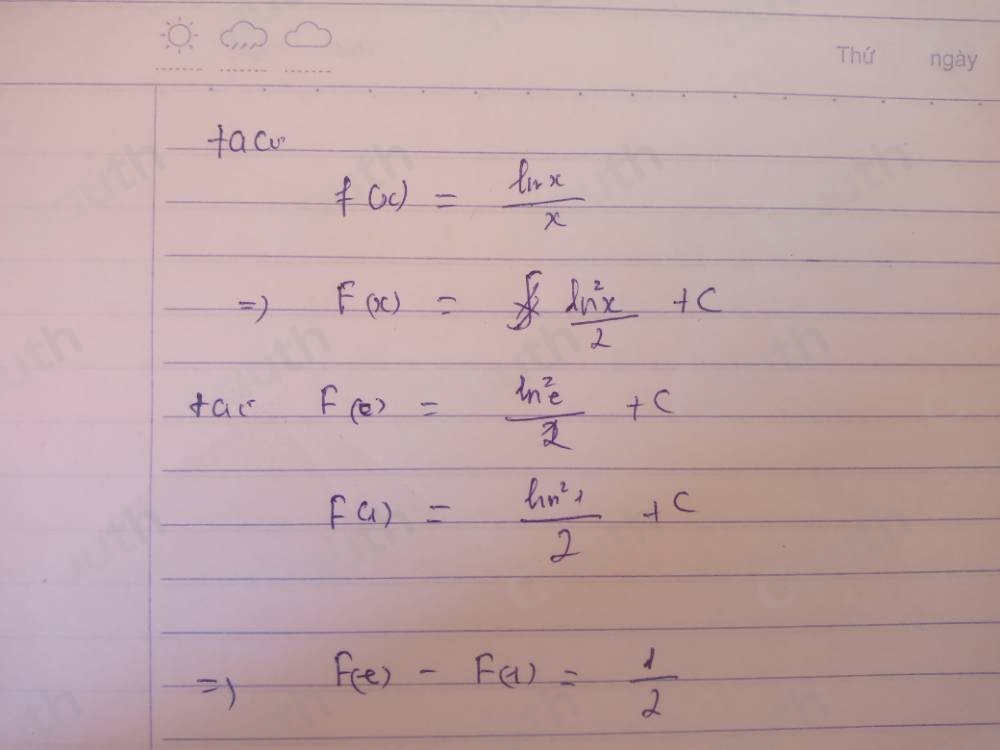 Thứ ngày
ta có
f(x) = \frac{ln x}{x}
=) F(x) = \frac{ln²x}{2} + C
ta có F(e) = \frac{ln²e}{2} + C
F(1) = \frac{ln²1}{2} + C
=) F(e) - F(1) = \frac{1}{2}